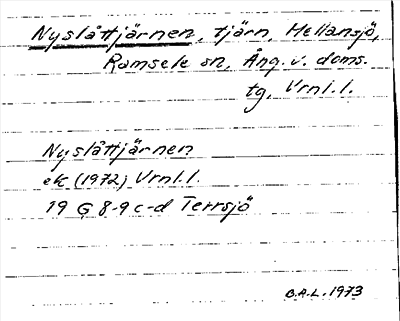 Nyslåttjärnen, tjärn, Hellansjö,
Ramsele sn, Ång. v. doms.
tg, Vrnl.l.
Nyslåttjärnen
ek (1972) Vrnl.l.
19 G 8-9 c-d Terrsjö
B.A.L. 1973